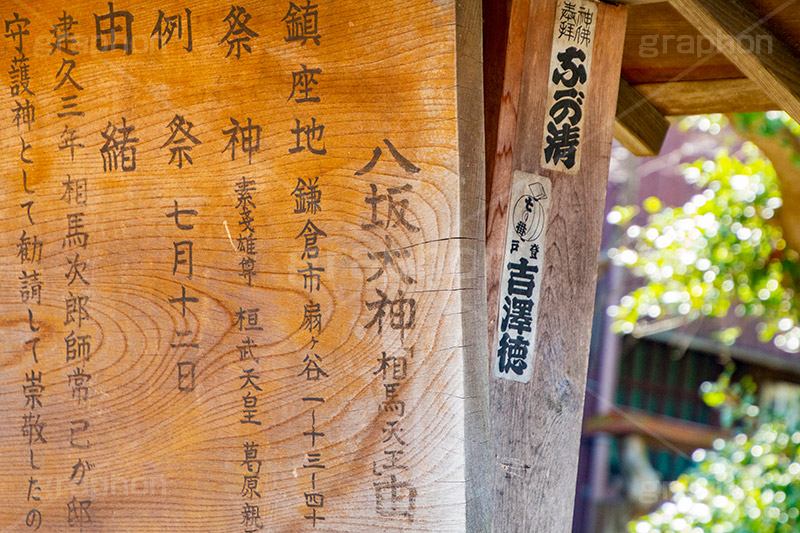 八坂大神 相馬天王
鎮座地 鎌倉市扇ヶ谷一ー十三ー四十
祭神 素戔雄尊 桓武天皇 葛原親
例祭 七月十二日
由緒
建久三年相馬次郎師常己が邸
守護神として勧請して崇敬したの
神佛
奉拝
登
戸
吉澤徳
graphon